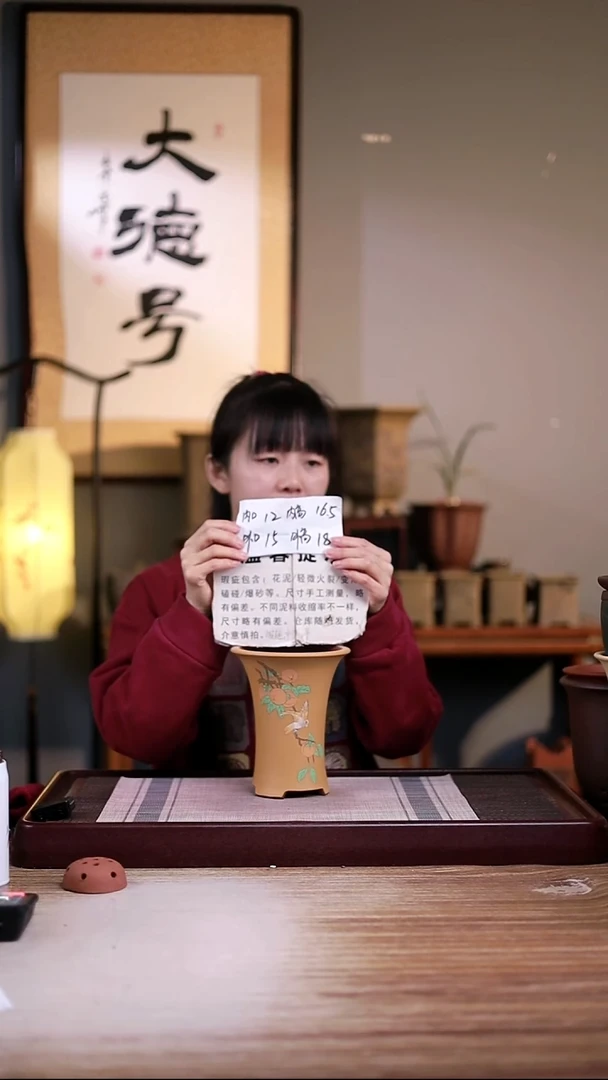 大德号
内口 12 内高 16.5
外口 15 外高 18
瑕疵包含：花泥/轻微火裂/变
磕碰/爆砂等。尺寸手工测量，略
有偏差。不同泥料收缩率不一样，
尺寸略有偏差。仓库随机发货，
介意慎拍。